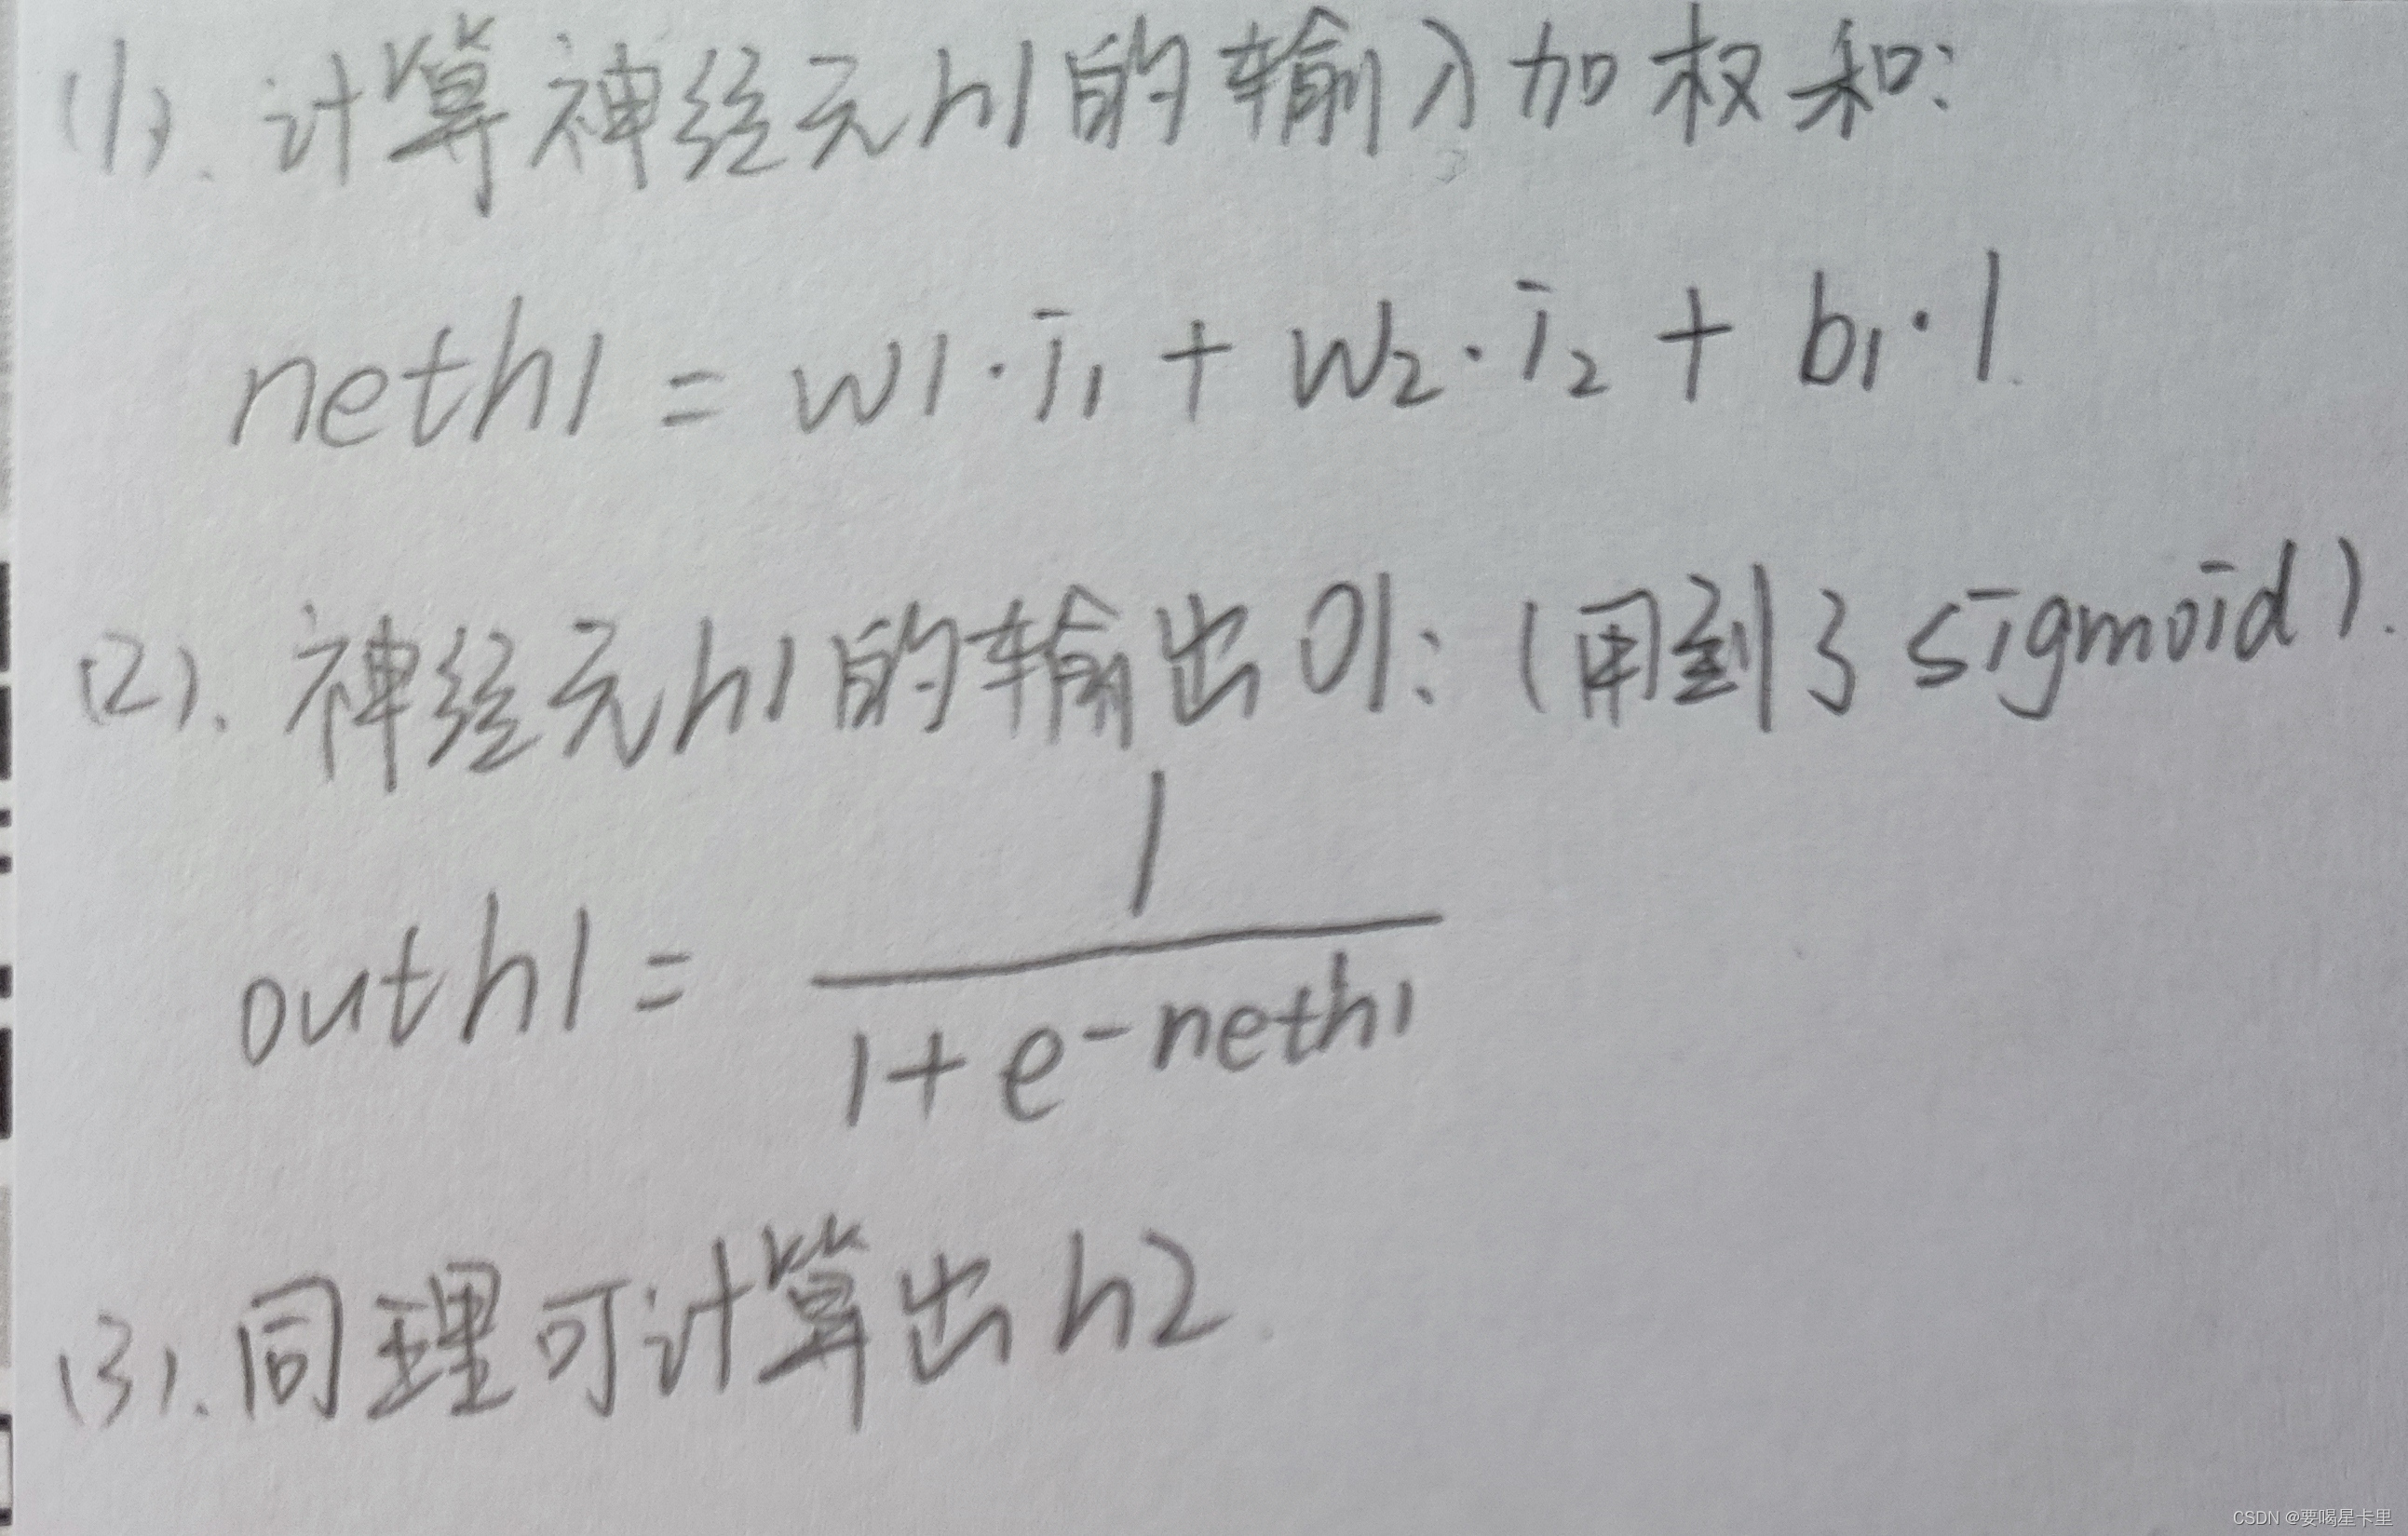 (1). 计算神经元h1的输入加权和:
neth1 = w1·i₁ + w₂·i₂ + b₁·1
(2). 神经元h1的输出01: (用到了sigmoid).
1
outh1 = ―――
1+e⁻ⁿᵉᵗʰ¹
(3). 同理可计算出h2.
CSDN @要喝星卡里